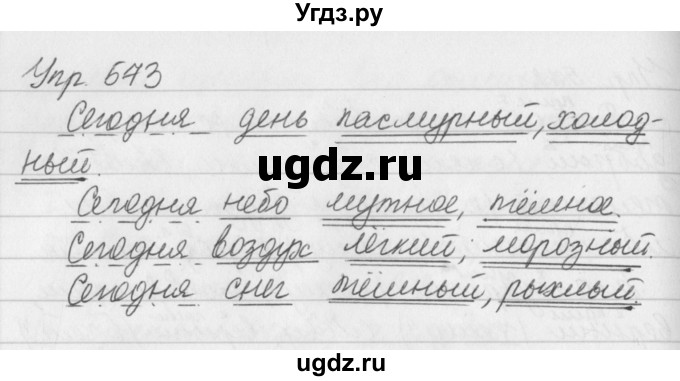 Угдз.ру
Упр. 643
Сегодня день пасмурный, холод-
ный.
Сегодня небо мутное, тёмное.
Сегодня воздух лёгкий, морозный.
Сегодня снег тёмный, рыхлый.
©ugdz.ru
ugdz.ru